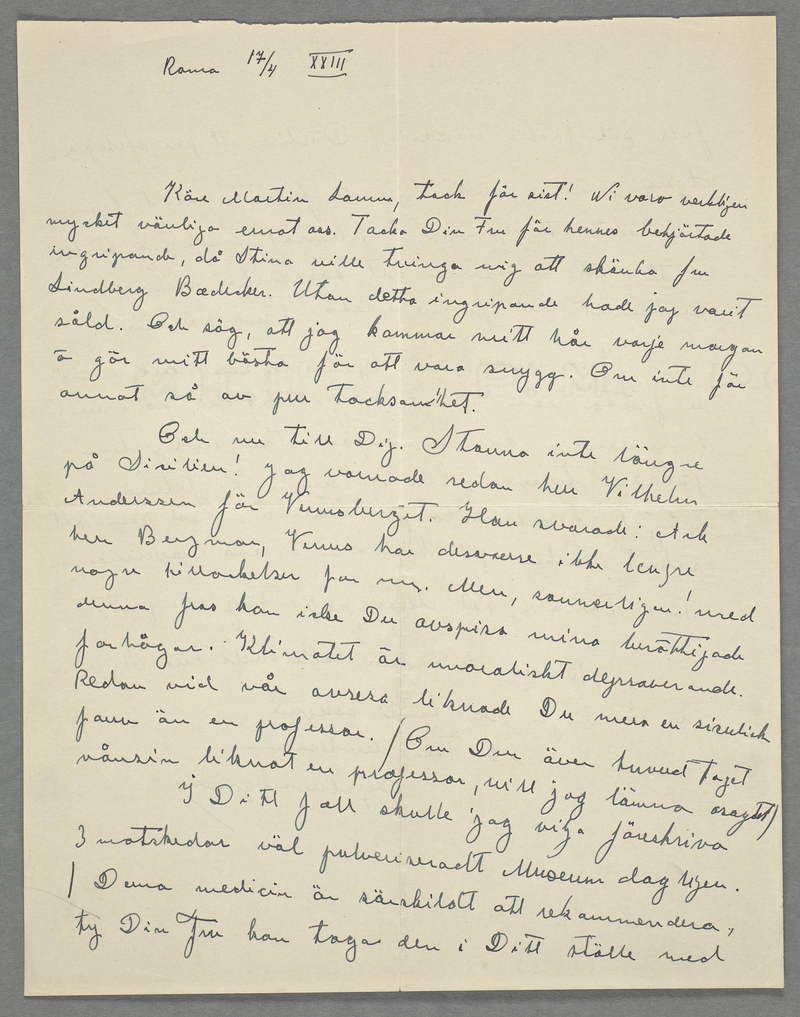 Roma 17/4 XXIII
Käre Martin Lamm, tack för sist! Ni voro verkligen
mycket vänliga emot oss. Tacka Din Fru för hennes behjärtade
ingripande, då Stina ville tvinga mig att skänka fru
Lindberg Bædecker. Utan detta ingripande hade jag varit
såld. Och säg, att jag kammar mitt hår varje morgon
o gör mitt bästa för att vara snygg. Om inte för
annat så av pur tacksamhet.
Och nu till Dig. Stanna inte längre
på Sicilien! Jag varnade redan herr Vilhelm
Anderssen för Venusberget. Han svarade: Ack
herr Bergman, Venus har desværre ikke længre
nogre tillockelser for mig. Men, sannerligen! med
denna fras kan icke Du avspisa mina berättigade
farhågor. Klimatet är moraliskt depraverande.
Redan vid vår avresa liknade Du mera en siciliansk
faun än en professor. (Om Du över huvud taget
någonsin liknat en professor, vill jag lämna osagdt)
I Ditt fall skulle jag vilja föreskriva
3 matskedar väl pulveriseradt Museum dagligen.
| Denna medicin är särskildt att rekommendera,
ty Din Fru kan taga den i Ditt ställe med